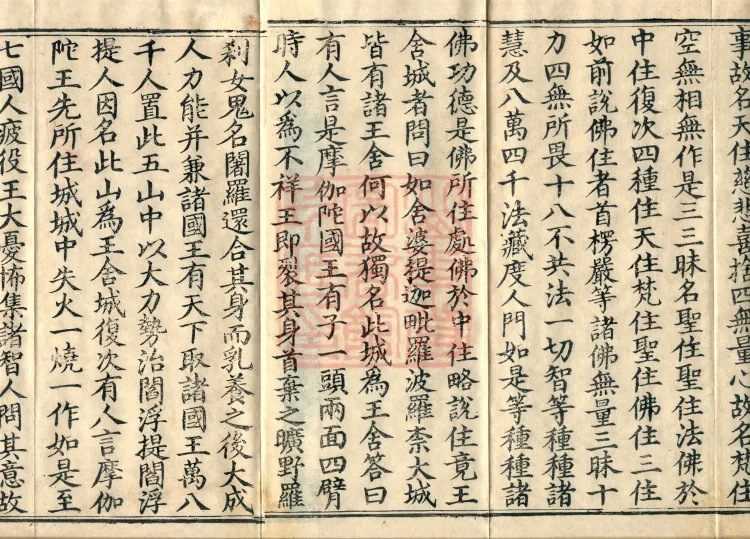 事故名天住慈悲喜捨四無量心故名梵住
空無相無作是三三昧名聖住聖住法佛於
中住復次四種住天住梵住聖住佛住三住
如前說佛住者首楞嚴等諸佛無量三昧十
力四無所畏十八不共法一切智等種種諸
慧及八萬四千法藏度人門如是等種種諸
佛功德是佛所住處佛於中住略說住竟王
舍城者問曰如舍婆提迦毗羅波羅柰大城
皆有諸王舍何以故獨名此城為王舍答曰
有人言是摩伽陀國王有子一頭兩面四臂
時人以為不祥王即裂其身首棄之曠野羅
剎女鬼名闍羅還合其身而乳養之後大成
人力能并兼諸國王有天下取諸國王萬八
千人置此五山中以大力勢治閻浮提閻浮
提人因名此山為王舍城復次有人言摩伽
陀王先所住城城中失火一燒一作如是至
七國人疲役王大憂怖集諸智人問其意故